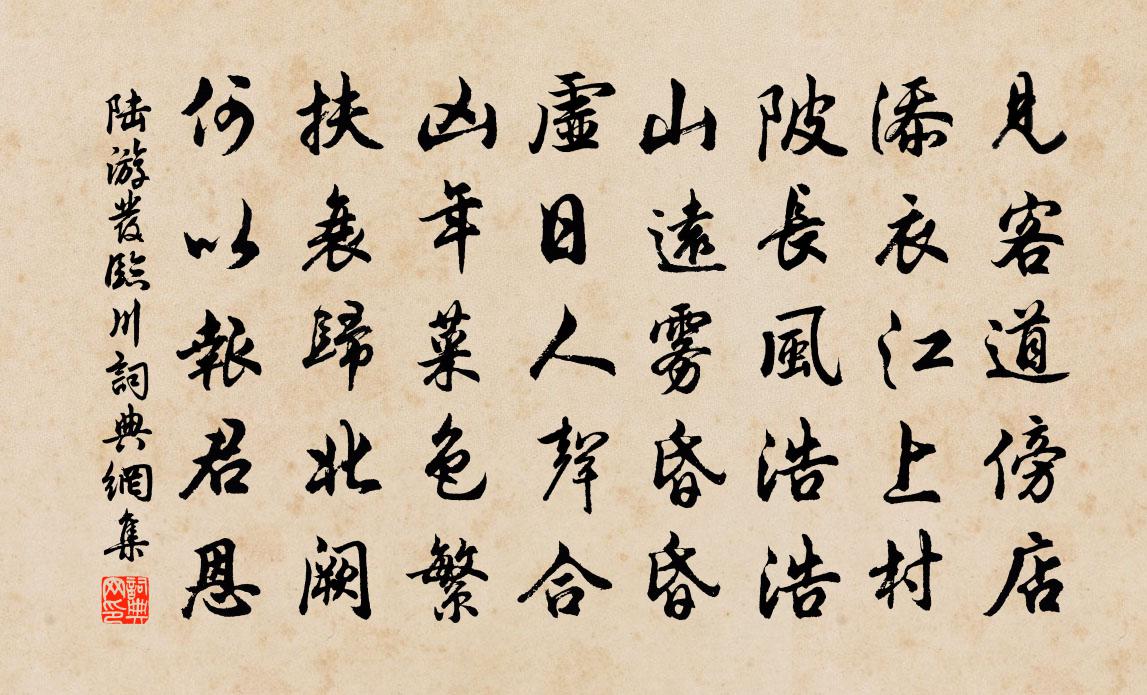 見客道傍店
添衣江上村
陂長風浩浩
山遠霧昏昏
虛日人聲合
凶年菜色繁
扶衰歸北闕
何以報君恩
陸游發臨川詞典網集
詞典
网印